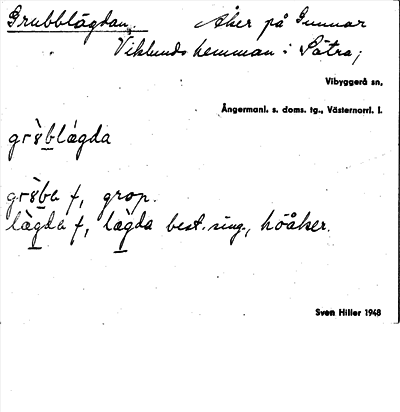 Grubblägdan, Åker på Gunnar
Viklunds hemman i Sätra;
Vibyggerå sn,
Ångermanl. s. doms. tg., Västernorrl. l.
gr8̀blägda
gr8̀ba f, grop.
lägda f, lägda best. sing., höåker.
Sven Hiller 1948